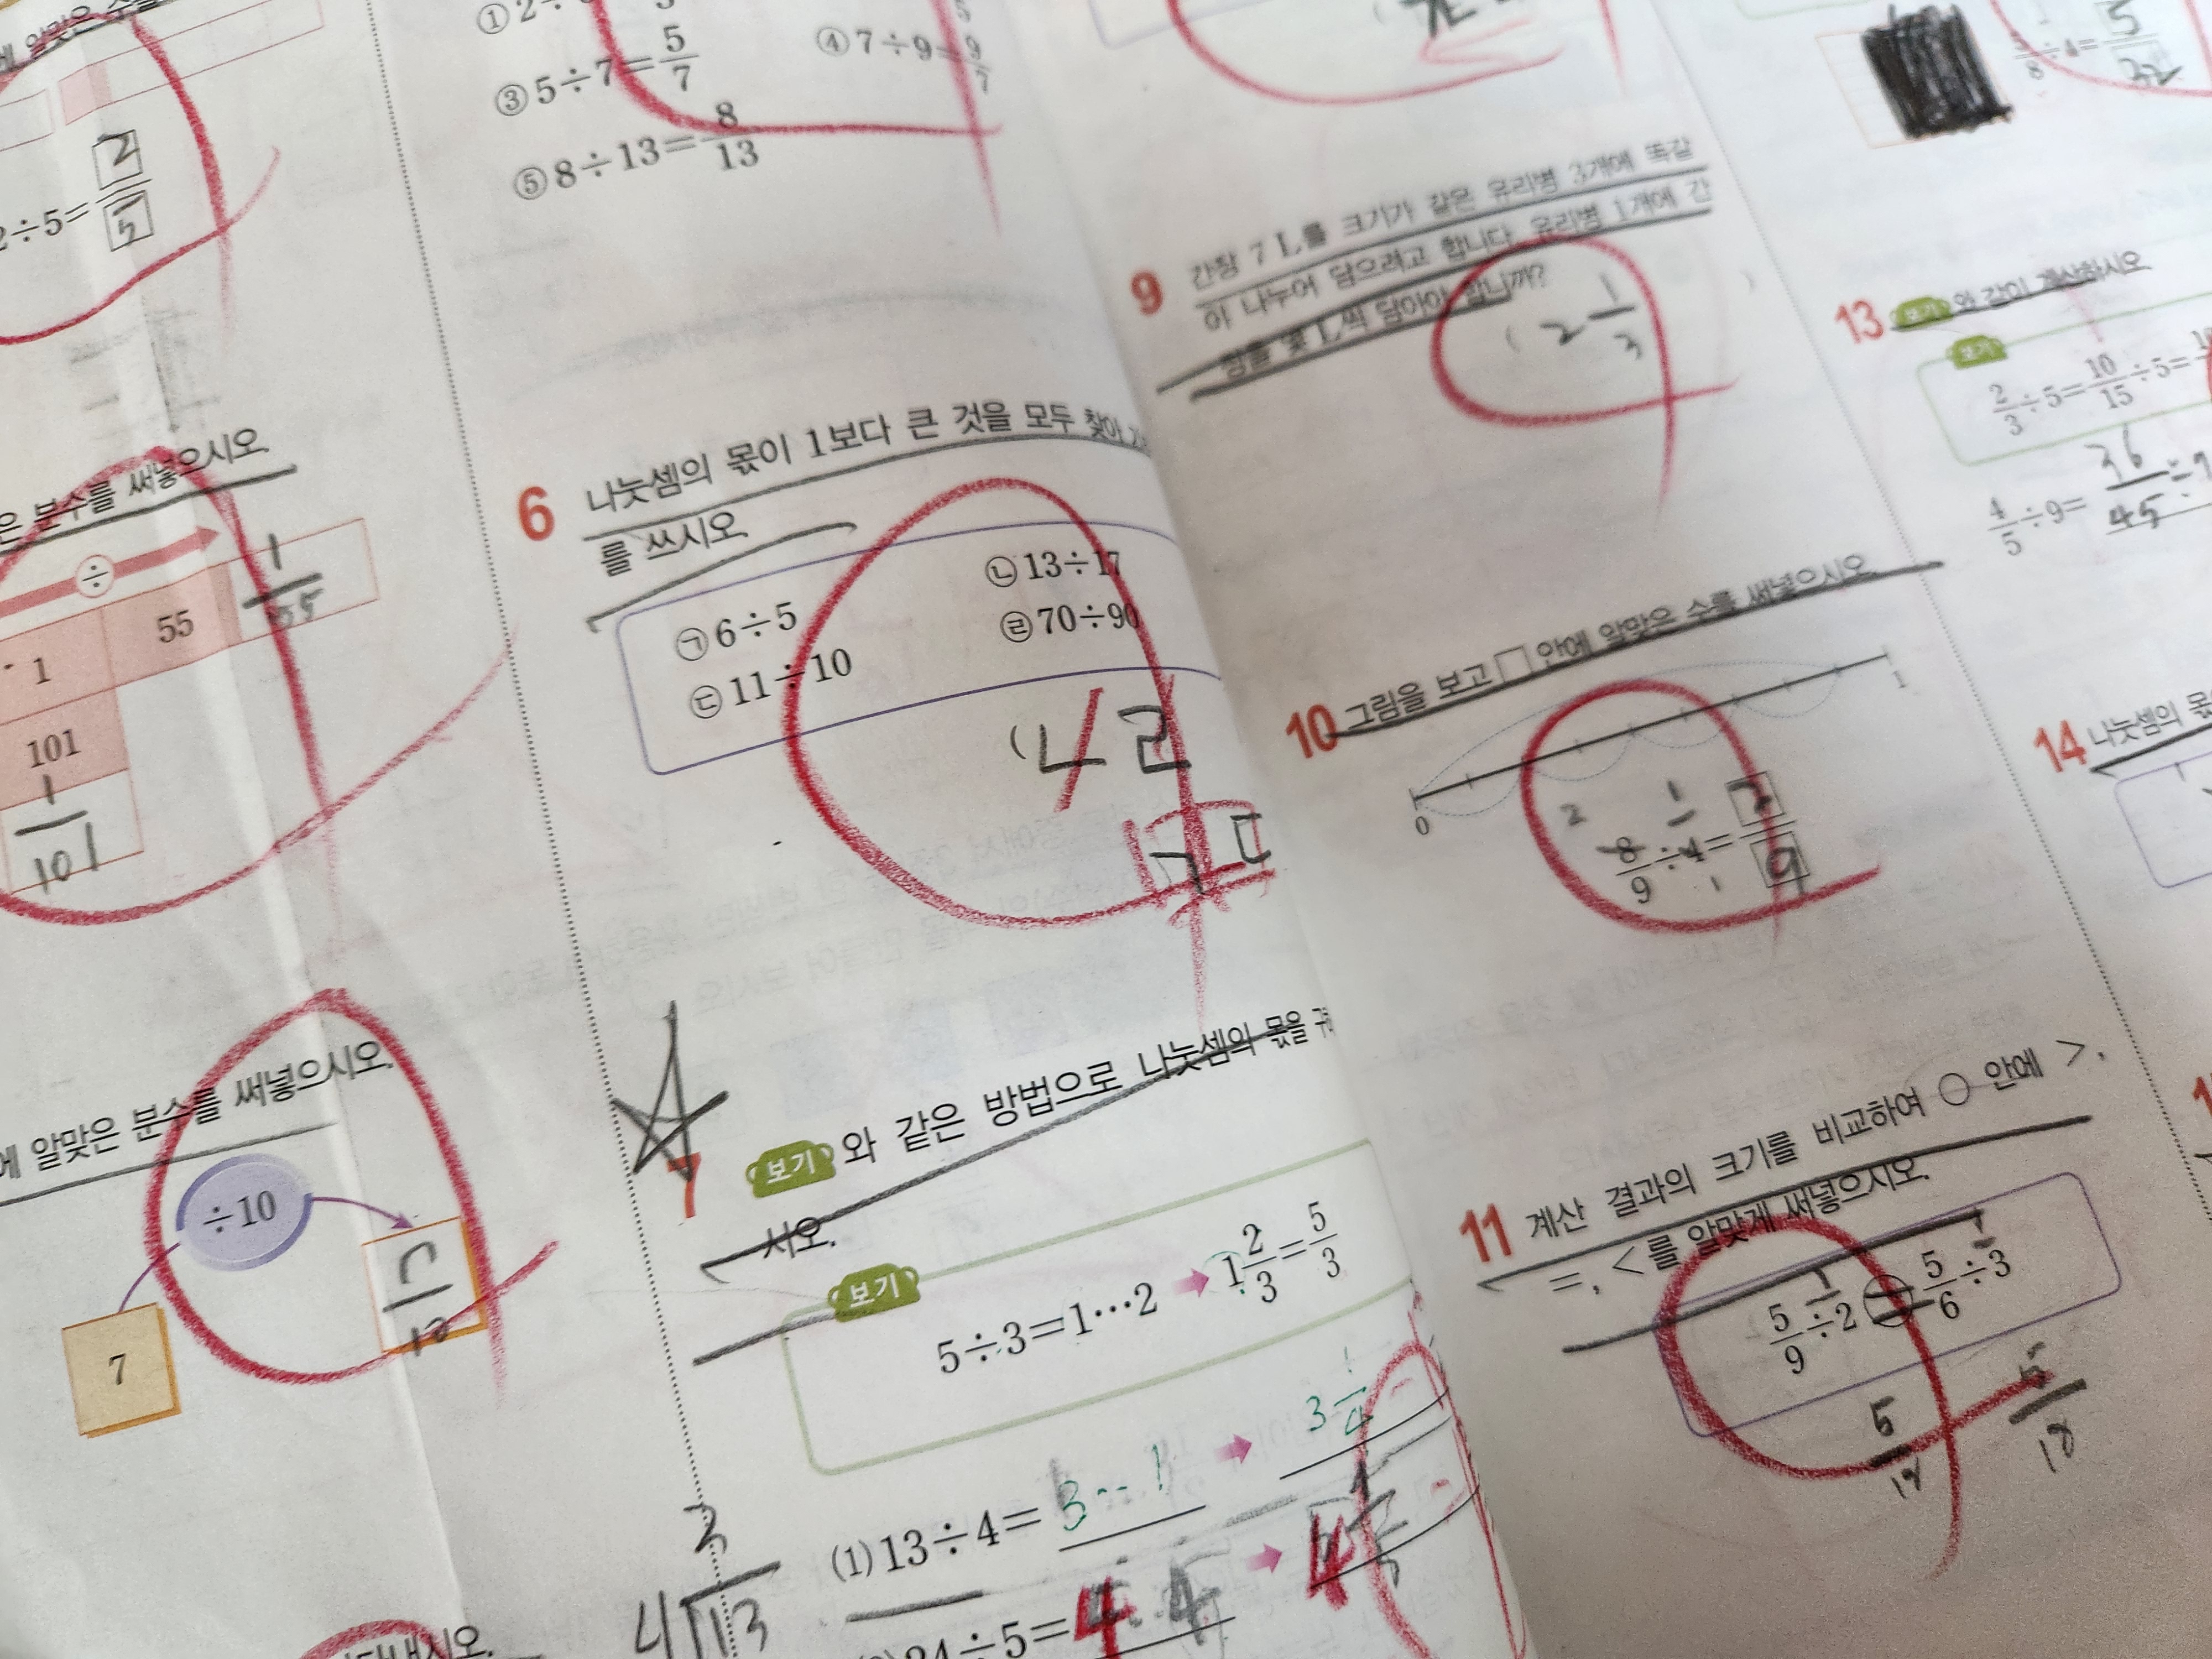 2÷5=2/5
은 분수를 써넣으시오.
÷
1 55 1/55
101
1/101
에 알맞은 분수를 써넣으시오.
÷10
7
7/10
③ 5÷7=5/7
④ 7÷9=9/7
⑤ 8÷13=8/13
6 나눗셈의 몫이 1보다 큰 것을 모두 찾아
를 쓰시오.
㉠ 6÷5 ㉡ 13÷17
㉢ 11÷10 ㉣ 70÷90
(ㄴ ㄹ
ㄱ ㄷ
7 보기 와 같은 방법으로 나눗셈의 몫을
시오.
보기
5÷3=1…2 ➡ 1 2/3=5/3
(1) 13÷4= 3…1 ➡ 3 1/4
3
4 13
24÷5= 4 4 ➡ 4
9 간장 7 L를 크기가 같은 유리병 3개에 똑같
이 나누어 담으려고 합니다. 유리병 1개에 간
장을 몇 L씩 담아야 합니까?
( 2 1/3 )
10 그림을 보고 □ 안에 알맞은 수를 써넣으시오.
0 1
2 1
8/9÷4=2/9
1
11 계산 결과의 크기를 비교하여 ○ 안에 >,
=, <를 알맞게 써넣으시오.
5/9÷2 = 5/6÷3
5/18 5/18
5/8÷4=5/32
13 보기 와 같이 계산하시오
보기
2/3÷5=10/15÷5=
4/5÷9=36/45÷9
14 나눗셈의 몫